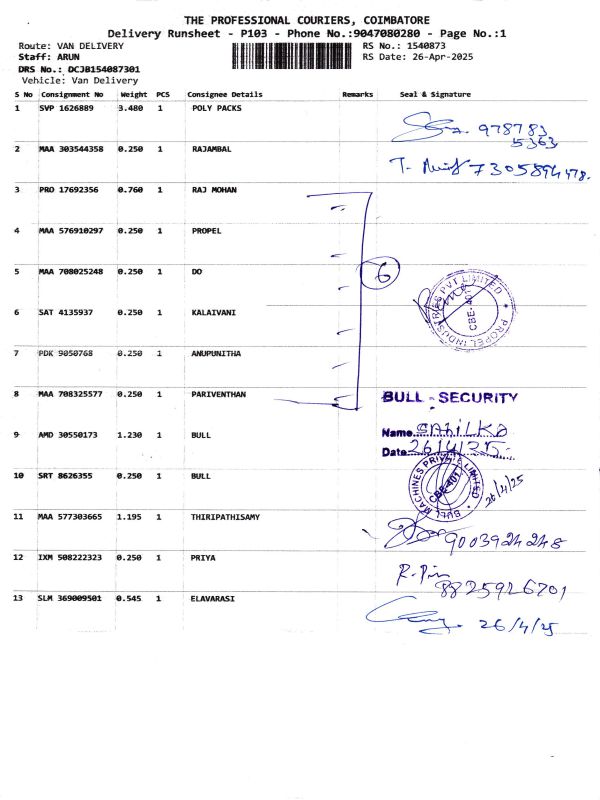 THE PROFESSIONAL COURIERS, COIMBATORE
Delivery Runsheet - P103 - Phone No.:9047080280 - Page No.:1
Route: VAN DELIVERY RS No.: 1540873
Staff: ARUN RS Date: 26-Apr-2025
DRS No.: DCJB154087301
Vehicle: Van Delivery
S No Consignment No Weight PCS Consignee Details Remarks Seal & Signature
1 SVP 1626889 3.480 1 POLY PACKS
978783
5363
2 MAA 303544358 0.250 1 RAJAMBAL
7305894478.
3 PRO 17692356 0.760 1 RAJ MOHAN
4 MAA 576910297 0.250 1 PROPEL
5 MAA 708025248 0.250 1 DO
6
PROPEL INDUSTRIES PVT LIMITED
CBE-401
6 SAT 4135937 0.250 1 KALAIVANI
7 PDK 9050768 0.250 1 ANUPUNITHA
8 MAA 708325577 0.250 1 PARIVENTHAN
BULL - SECURITY
9 AMD 30550173 1.230 1 BULL
Name
Date 26/4/25
10 SRT 8626355 0.250 1 BULL
BULL MACHINES PRIVATE LIMITED
CBE-401
26/4/25
11 MAA 577303665 1.195 1 THIRIPATHISAMY
9003924248
12 IXM 508222323 0.250 1 PRIYA
8825926701
13 SLM 369009501 0.545 1 ELAVARASI
26/4/25